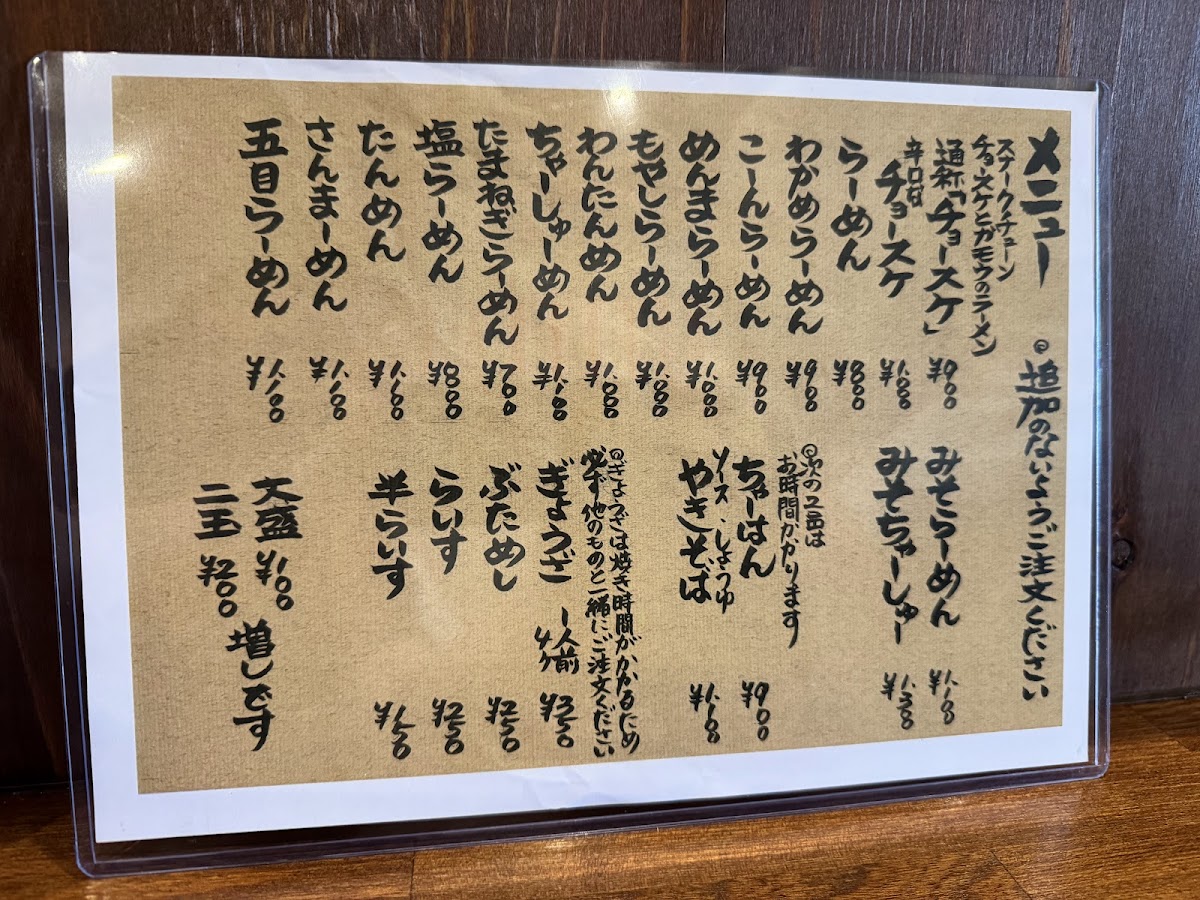 メニュー
◎追加のないようご注文ください
スナーク、チューン
チョースケヒガモウのラーメン
通称「チョースケ」 ¥900
辛口
チョースケ ¥1,000
らーめん ¥800
わかめらーめん ¥900
こーんらーめん ¥900
めんまらーめん ¥1,000
もやしらーめん ¥1,000
わんたんめん ¥1,000
ちゃーしゅーめん ¥1,100
たまねぎらーめん ¥700
塩らーめん ¥800
たんめん ¥1,100
さんまーめん ¥1,100
五目らーめん ¥1,100
みそらーめん ¥1,100
みそちゃーしゅー ¥1,300
◎次の2品は
お時間かかります
ちゃーはん ¥900
ソース・しょうゆ
やきそば ¥1,100
◎ぎょうざは焼き時間がかかるため
必ず他のものと一緒にご注文ください
ぎょうざ 一人前 4ケ ¥350
ぶためし ¥250
らいす ¥250
半らいす ¥150
大盛 ¥100
二玉 ¥200
増しです